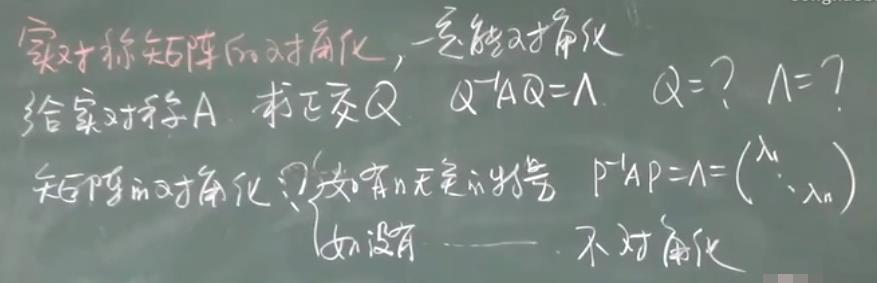 实对称矩阵的对角化，一定能对角化
给实对称A 求正交Q Q⁻¹AQ=Λ. Q=? Λ=?
矩阵的对角化：{如有n无关的特量 P⁻¹AP=Λ=(λ₁ ⋱ λₙ)
如没有 —— . 不对角化